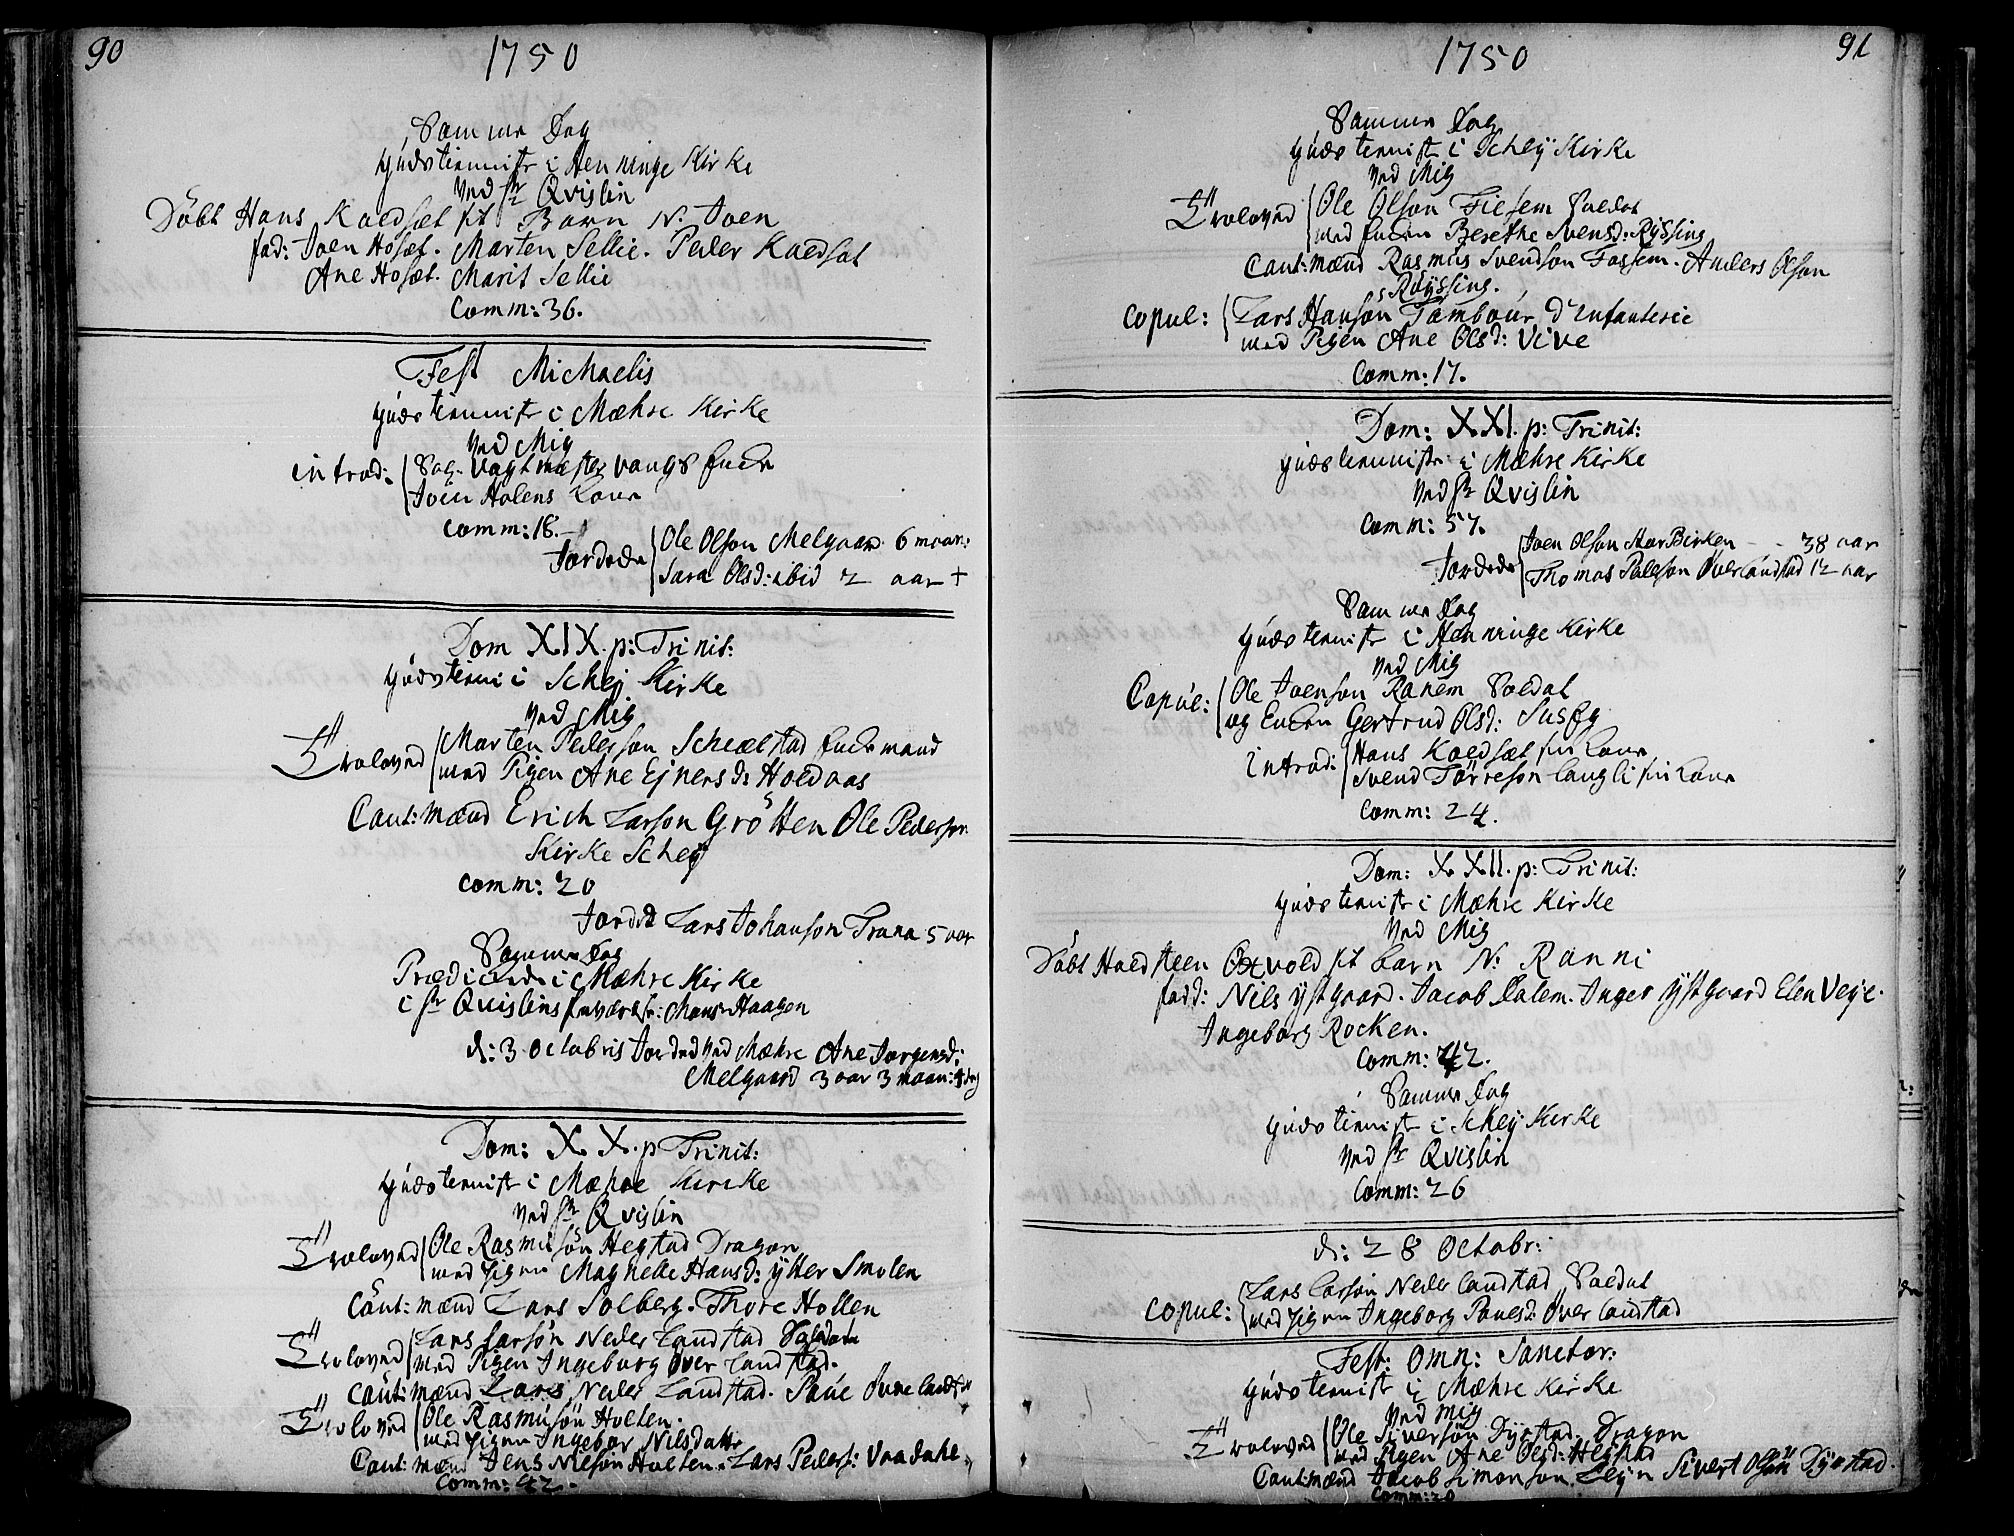 90
1750
Samme Dag
Gudstienniste i Henninge Kirke
Ved Hr Qvislin
Döbt Hans Kaldsæt sit Barn N: Joen
fad: Joen Hosæt. Marten Sellie. Peder Kaldsæt
Ane Hosæt. Marit Sellie
Comm: 36.
Fest Michaelis
Gudstienniste i Mæhre Kirke
Ved Mig
introd: Sal. Vagtmester Vangs Encke
Joen Holens Kone
Comm: 18.
Jordede Ole Olson Melgaard 6 maan:
Sara Olsd: ibid 2 aar +
Dom XIX. p: Trinit:
Gudstienn i Schej Kirke
Ved Mig
Troloved Marten Pederson Schiælstad Enckemand
med Pigen Ane Ejnersd: Holdaas
Caut: mænd Erich Larson Grötten Ole Pederson
Kirke Schej
Comm: 20
Jordet Lars Johanson Trana 5 aar
Samme Dag
Prædicerede i Mæhre Kirke
i Hr Qvislins fraværelse: Mons: Haagen
d: 3 Octobris Jorded ved Mæhre Ane Jørgensd:
Melgaard 3 aar 3 maan: 4 dag
Dom: XX. p Trinit:
Gudstienniste i Mæhre Kircke
Ved Hr Qvislin
Troloved Ole Rasmusön Hegstad Dragon
med Pigen Magnelle Hansd: ytter Smolen
Caut: mænd Lars Solberg. Thore Hollen
Troloved Lars Larsön Neder Landstad Soldat
med Pigen Ingeborg Över Landstad.
Caut: mænd Lars Neder Landstad. Paul Övre Landst
Troloved Ole Rasmusön Holten.
med Pigen Ingebor Nilsdatter
Caut: mænd Jens Nilsön Holten. Lars Peders: Vaadahl
Comm: 42.
1750
91
Samme Dag
Gudstienniste i Schej Kirke
Ved Mig
Troloved Ole Olson Fiesem Soldat
med Encken Berethe Svensd: Ryssing
Caut: mænd Rasmus Svendson Fossem. Anders Olson
Ryssing.
Copul: Lars Hansön Tambour d'Infanterie
med Pigen Ane Olsd: Vive
Comm: 17.
Dom: XXI. p: Trinit:
Gudstienniste i Mæhre Kirke
Ved Hr Qvislin
Comm: 57.
Jordede Joen Olson StorBirken - - 38 aar
Thomas Pederson Överlandstad 12 aar
Samme Dag
Gudstienniste i Henninge Kirke
Ved Mig
Copul: Ole Joenson Ranem Soldat
og Encken Gertrud Olsd:
introd: Hans Kaldsæt sin Kone
Svend Törreson Langli sin Kone
Comm: 24.
Dom: XXII. p: Trinit:
Gudstienniste i Mæhre Kirke
Ved Mig
Döbt Haldsteen Oxvold sit barn N: Ranni
fadd: Nils ystgaard. Jacob Dalem. Inger ystgaard Elen Veye.
Ingeborg Rocken.
Comm: 42.
Samme Dag
Gudstienniste i Schej Kirke
Ved Hr Qvislin
Comm: 26
d: 28 Octobr:
Copul: Lars Larsön Neder Landstad Soldat
med Pigen Ingeborg Paulsd: Över Landstad
Fest: Omn: Sanctor:
Gudstienniste i Mæhre Kirke
Ved Mig
Troloved Ole Sivertsön Dyrstad. Dragon
med Pigen Ane Olsd: Hegstad
Caut: mænd Jacob Simonson Lejn Sivert Olsön Dyrstad.
Comm: 20